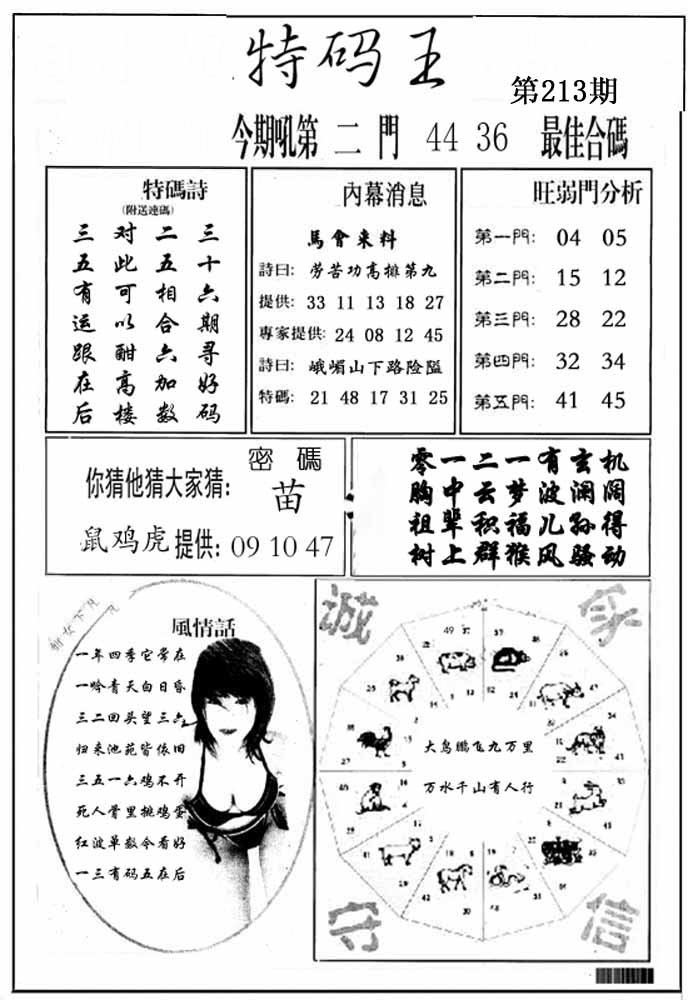 特码王
第213期
今期吼第 二 門 44 36 最佳合碼
特碼詩
(附送連碼)
三十六期寻好码
二五相合六加数
对此可以酣高楼
三五有运跟在后
內幕消息
馬會来料
詩曰: 劳苦功高排第九
提供: 33 11 13 18 27
專家提供: 24 08 12 45
詩曰: 峨嵋山下路险隘
特碼: 21 48 17 31 25
旺弱門分析
第一門: 04 05
第二門: 15 12
第三門: 28 22
第四門: 32 34
第五門: 41 45
密碼
你猜他猜大家猜: 苗
鼠鸡虎 提供: 09 10 47
零一二一有玄机
胸中云梦波澜阔
祖辈积福儿孙得
树上群猴风骚动
仙女下凡
風情話
一年四季它常在
一吟青天白日昏
三二回头望三六
归来池苑皆依旧
三五一六鸡不开
死人骨里挑鸡蛋
红波单数令看好
一三有码五在后
誠
家
大鸟鹏飞九万里
万水千山有人行
守
信